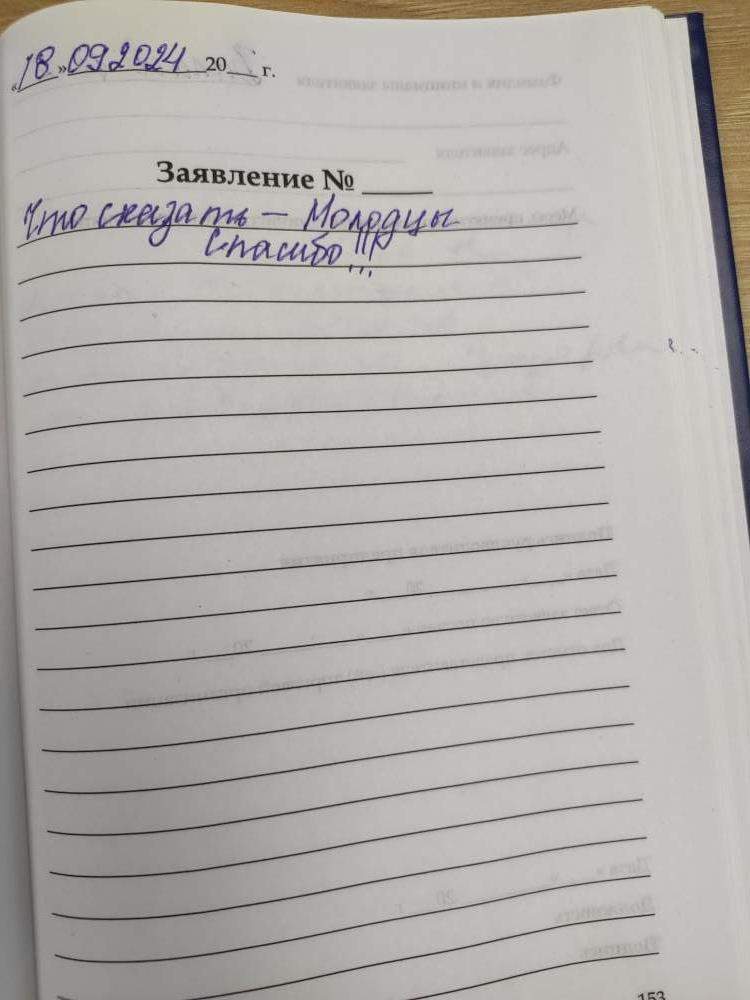 «18» 09 2024 20__ г.
Заявление № ____
Что сказать – Молодцы
Спасибо!!!
153